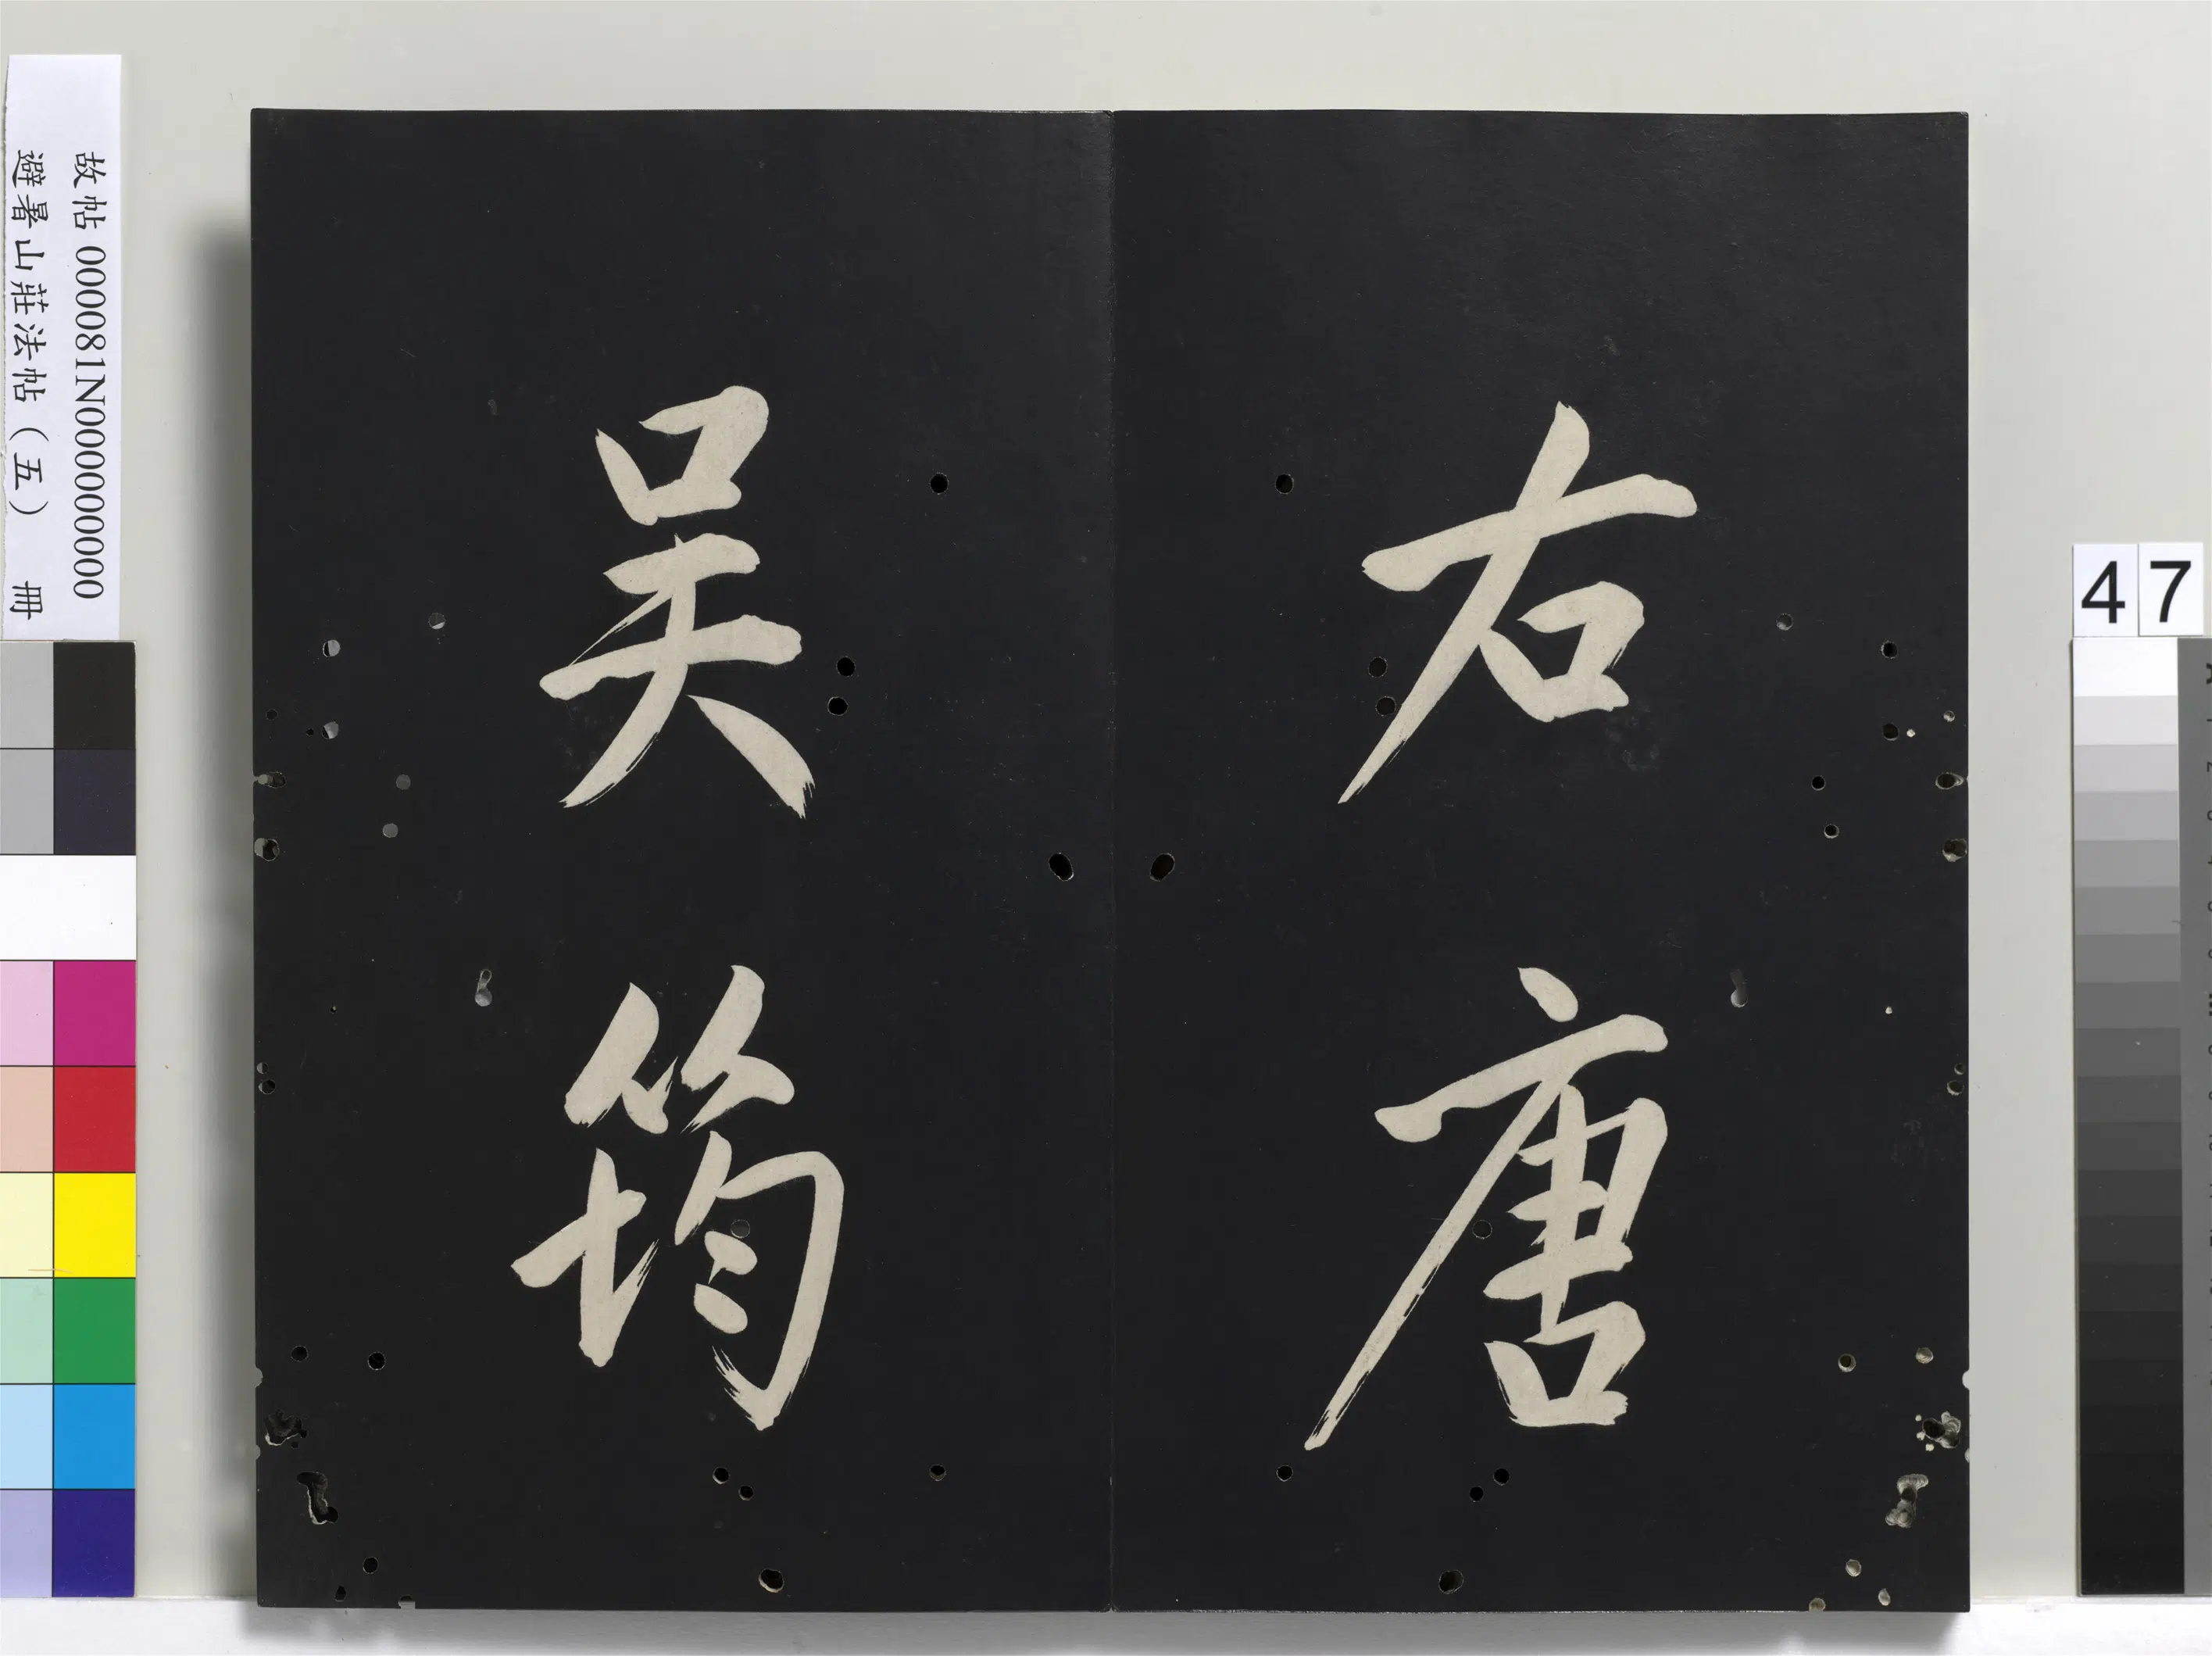 右唐
吴筠
故帖 000081N000000000
避暑山莊法帖（五） 冊
47